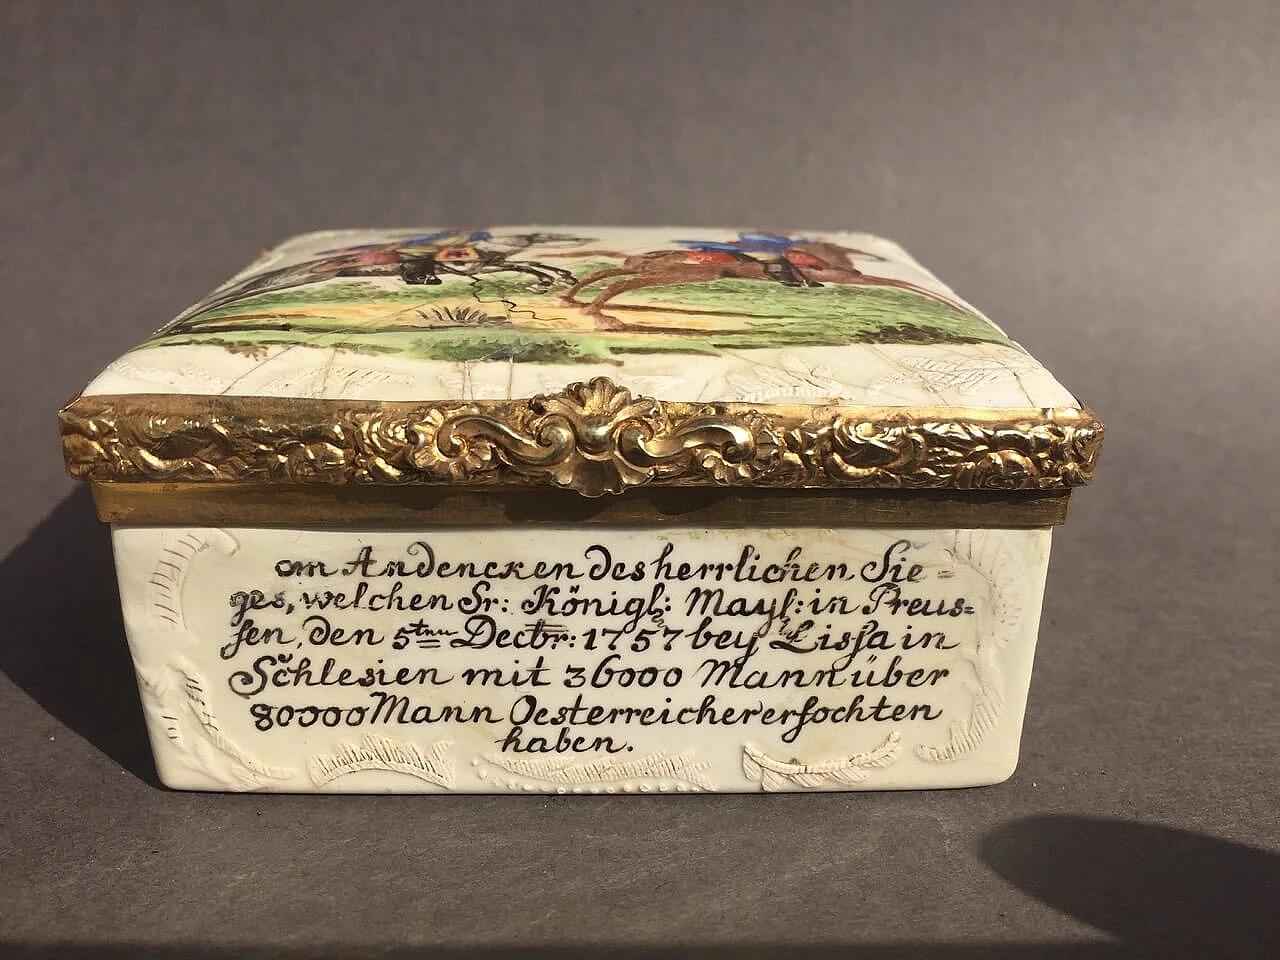 am Andencken des herrlichen Sie=
ges, welchen Sr: Königl: Mayſ: in Preus=
ſen, den 5ten Decbr: 1757 bey Liſſa in
Schlesien mit 36000 Mann über
80000 Mann Oesterreicher erfochten
haben.